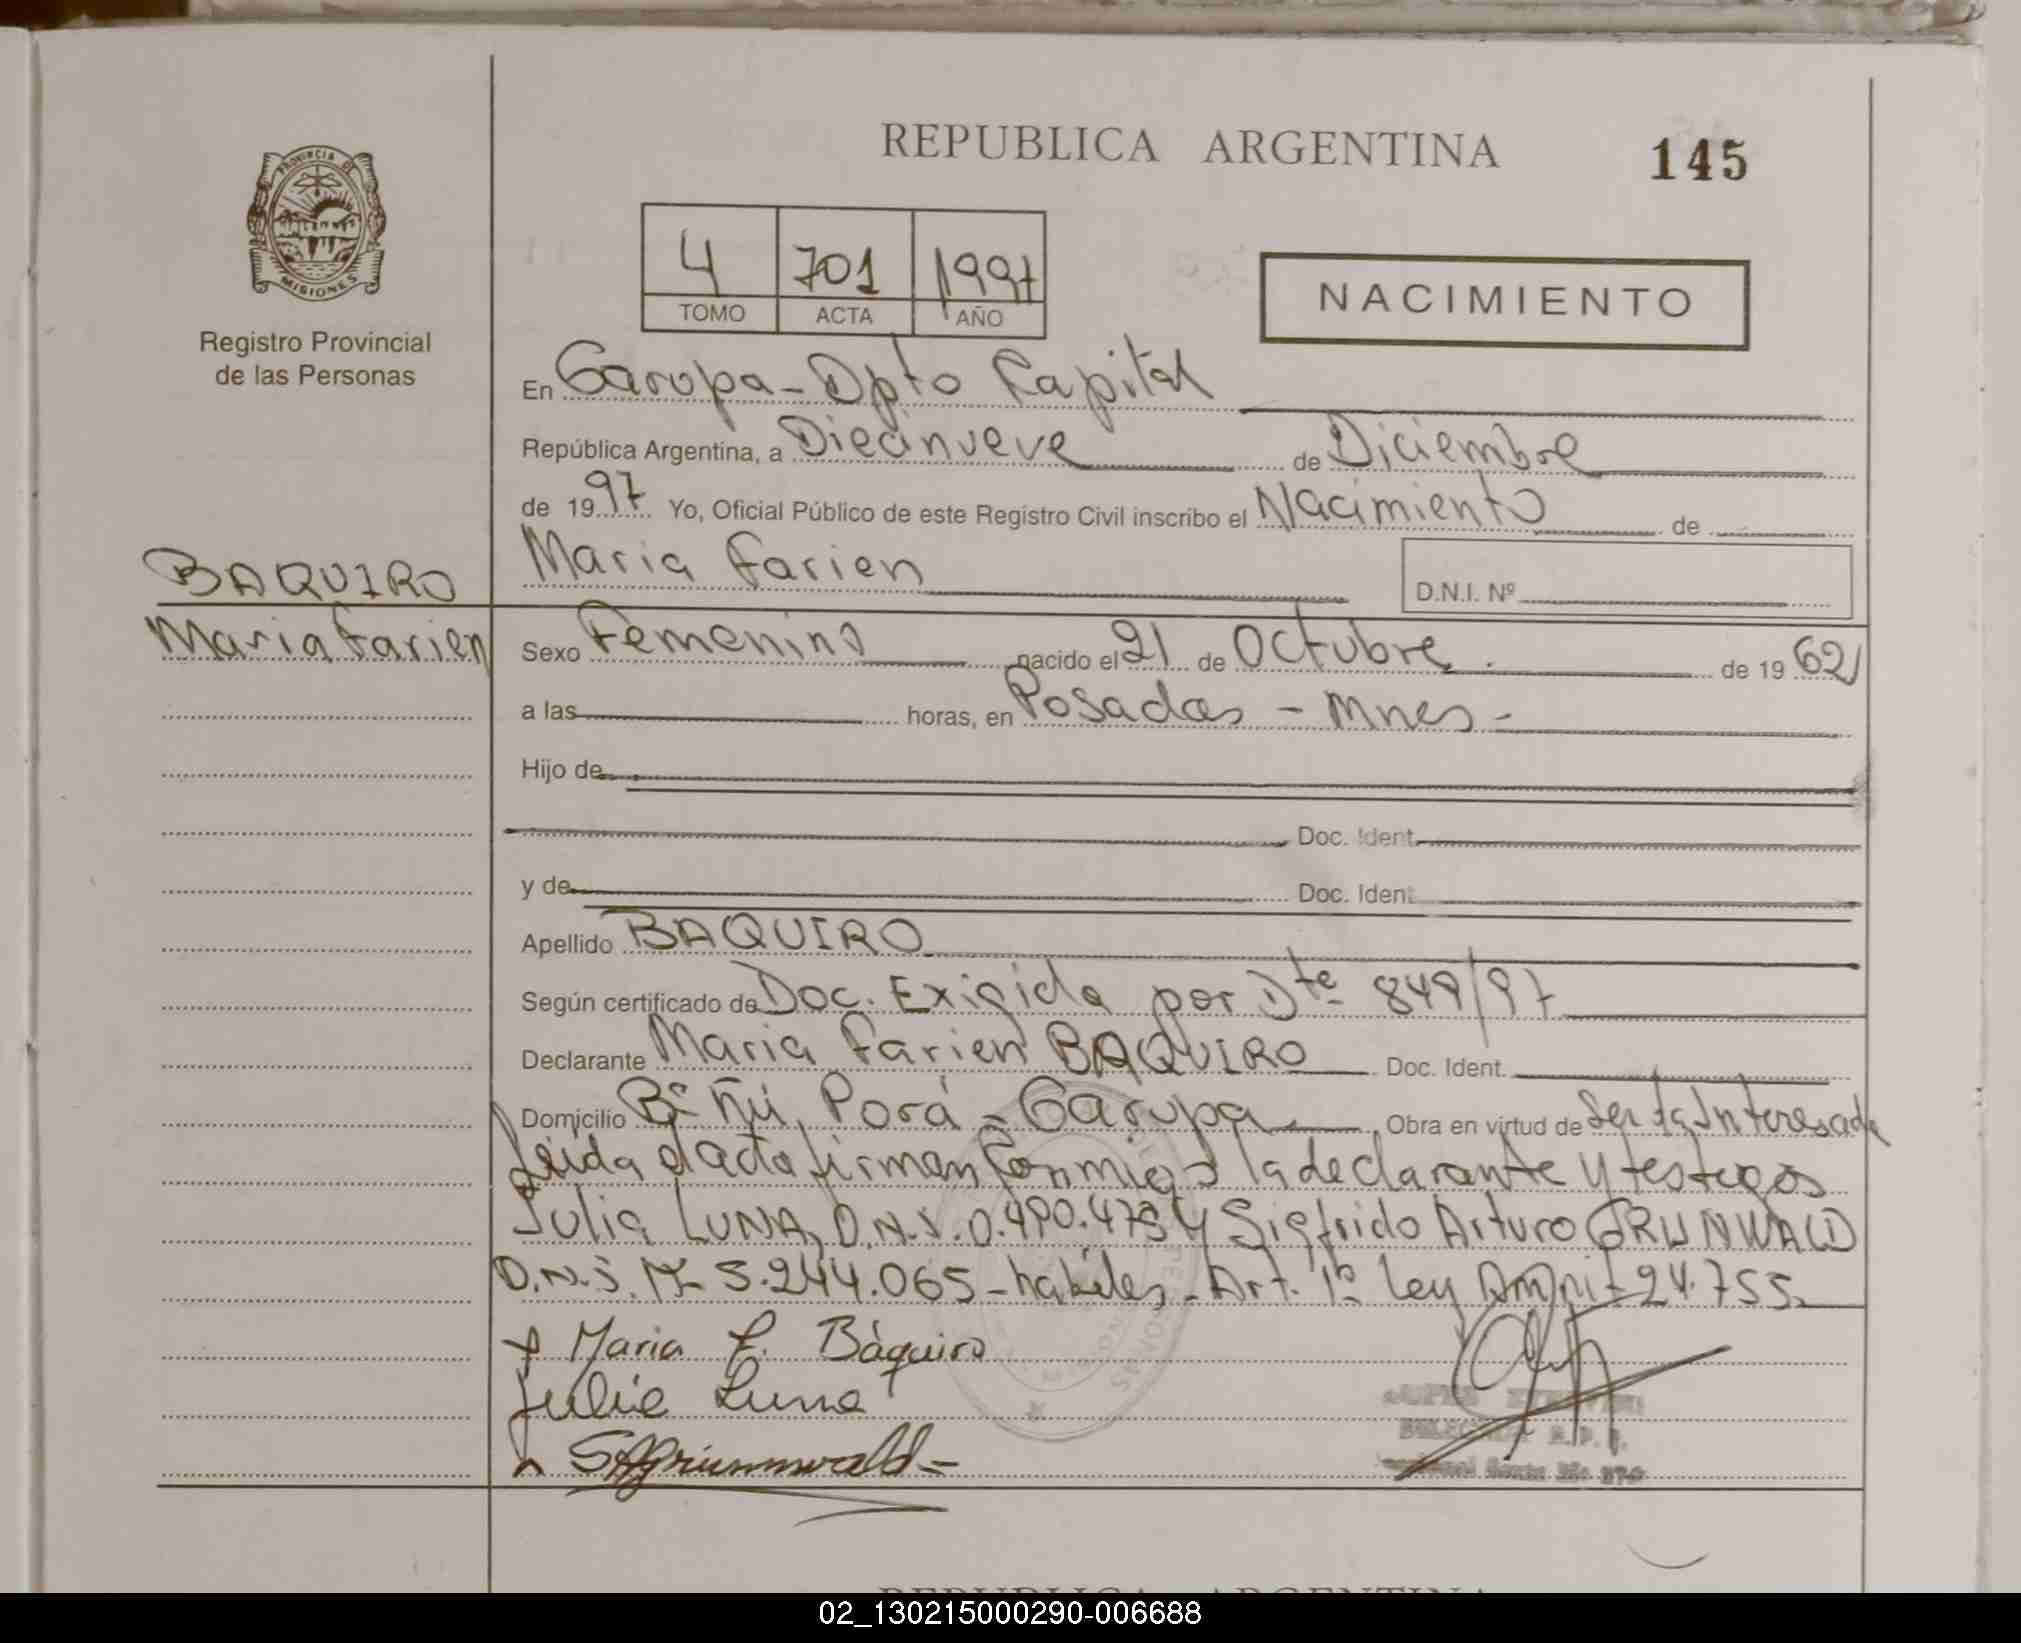 REPUBLICA ARGENTINA
145
PROVINCIA DE
MISIONES
Registro Provincial
de las Personas
4 701 1997
TOMO ACTA AÑO
NACIMIENTO
En Garupa - Dpto Capital
República Argentina, a Diecinueve de Diciembre
de 1997 Yo, Oficial Público de este Registro Civil inscribo el Nacimiento de
Maria Farien
D.N.I. Nº
BAQUIRO
Maria Farien
Sexo Femenino nacido el 21 de Octubre de 1962
a las horas, en Posadas - Mnes -
Hijo de
Doc. Ident.
y de Doc. Ident.
Apellido BAQUIRO
Según certificado de Doc. Exigida por Dte 849/97
Declarante Maria Farien BAQUIRO Doc. Ident.
Domicilio Bº Ñú Porá - Garupa Obra en virtud de Ser la Interesada
Leida el acta firman conmigo la declarante y testigos
Julia LUNA, D.N.I. y Sigfrido Arturo GRUNWALD
D.N.I. Nº 5.244.065 - habiles - Art. 1º Ley 24.755
Maria F. Báquiro
Julia Luna
SAGriunnwald -
REPUBLICA ARGENTINA
02_130215000290-006688